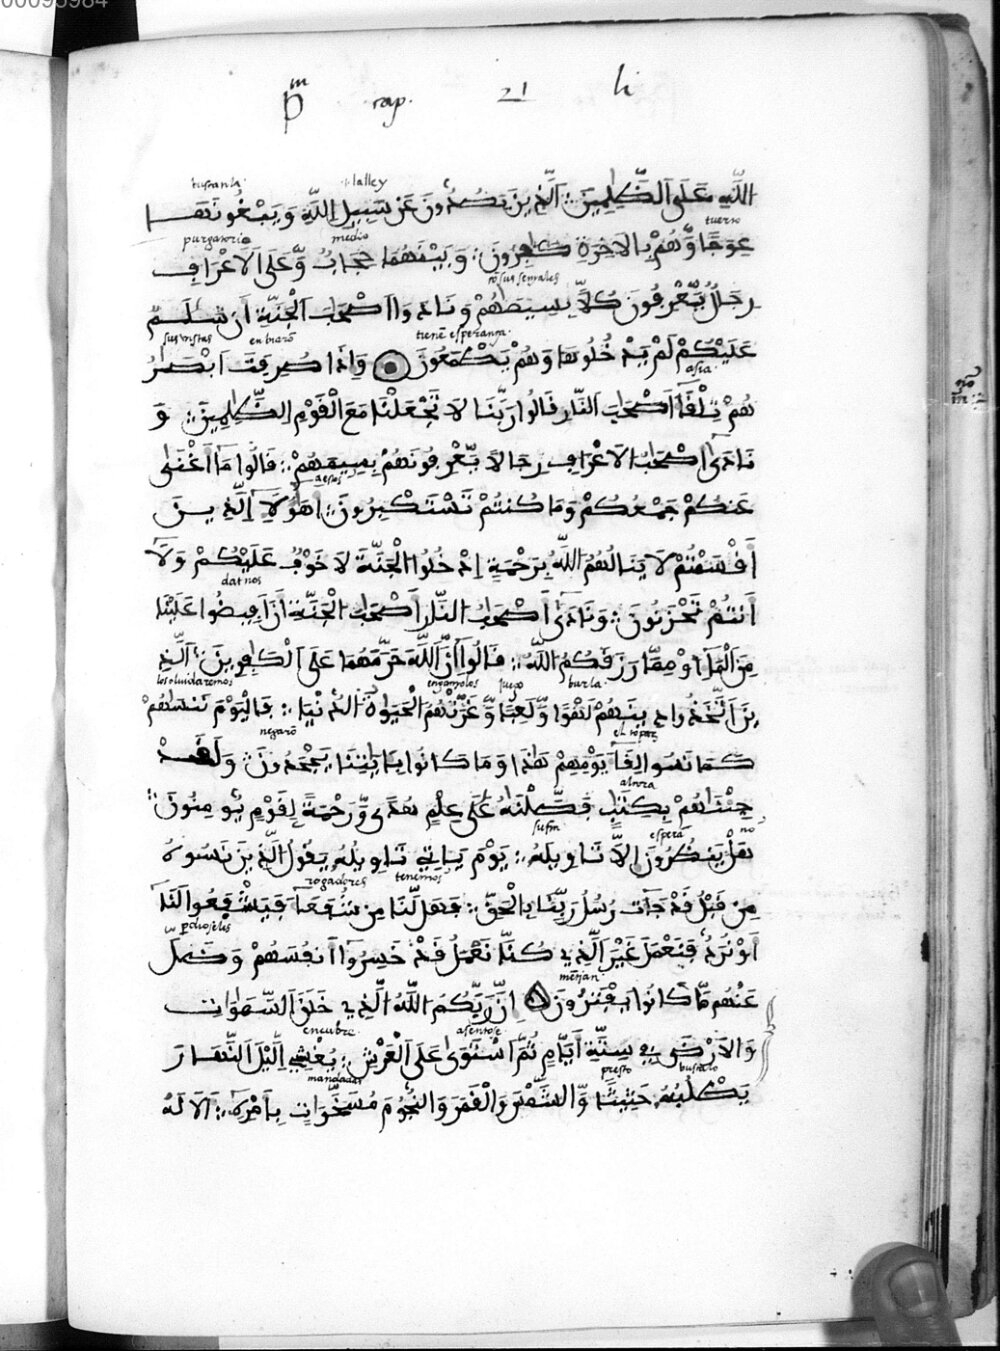 00093984
pm cap. 21 li
buscanla. la ley
اللَّهِ عَلَى الظَّٰلِمِينَ ∴ الَّذِينَ يَصُدُّونَ عَن سَبِيلِ اللَّهِ وَيَبْغُونَهَا
tuerto
purgatorio medio
عِوَجًا وَّهُم بِالَاخِرَةِ كَٰفِرُونَ ∴ وَبَيْنَهُمَا حِجَابٌ وَّعَلَى الَاعْرَافِ
cō sus señales
رِجَالٌ يَّعْرِفُونَ كُلًّا بِسِيمَٰهُمْ وَنَادَوَا اَصْحَٰبَ الْجَنَّةِ أَن سَلَٰمٌ
sus vistas entrarō tienē esperança.
عَلَيْكُمْ لَمْ يَدْخُلُوهَا وَهُمْ يَطْمَعُونَ وَإِذَا صُرِفَتَ اَبْصَٰرُ
asia.
هُمْ تِلْقَآ أَصْحَٰبِ النَّارِ قَالُوا رَبَّنَا لَا تَجْعَلْنَا مَعَ الْقَوْمِ الظَّٰلِمِينَ ∴ وَ
نَادَىٰ أَصْحَٰبُ الَاعْرَافِ رِجَالًا يَّعْرِفُونَهُم بِسِيمَٰهُمْ ∴ قَالُوا مَا أَغْنَىٰ
aestos
عَنكُمْ جَمْعُكُمْ وَمَا كُنتُمْ تَسْتَكْبِرُونَ ∴ أَهَٰؤُلَآ الَّذِيـنَ
أَقْسَمْتُمْ لَا يَنَالُهُمُ اللَّهُ بِرَحْمَةٍ ادْخُلُوا الْجَنَّةَ لَا خَوْفٌ عَلَيْكُمْ وَلَا
dat nos
أَنتُمْ تَحْزَنُونَ ∴ وَنَادَىٰ أَصْحَٰبُ النَّارِ أَصْحَٰبَ الْجَنَّةِ أَنَ اَفِيضُوا عَلَيْنَا
مِنَ الْمَآ أَوْ مِمَّا رَزَقَكُمُ اللَّهُ ∴ قَالُوا إِنَّ اللَّهَ حَرَّمَهُمَا عَلَى الْكَٰفِرِينَ ∴ الَّذِ
los oluidaremos engañolos juego burla.
ينَ اتَّخَذُوا دِينَهُمْ لَهْوًا وَّلَعِبًا وَّغَرَّتْهُمُ الْحَيَوٰةُ الدُّنْيَا ∴ فَالْيَوْمَ نَنسَٰهُمْ
negarō el topar
كَمَا نَسُوا لِقَآ يَوْمِهِمْ هَٰذَا وَمَا كَانُوا بِـَٔايَٰتِنَا يَجْحَدُونَ ∴ وَلَقَـــدْ
ahora
جِئْنَٰهُم بِكِتَٰبٍ فَصَّلْنَٰهُ عَلَىٰ عِلْمٍ هُدًى وَّرَحْمَةً لِقَوْمٍ يُومِنُونَ ∴
su fin espera no
هَلْ يَنظُرُونَ إِلَّا تَاوِيلَهُ ∴ يَوْمَ يَاتِي تَاوِيلُهُ يَقُولُ الَّذِينَ نَسُوهُ
rogadores tenemos
مِن قَبْلُ قَدْ جَآتْ رُسُلُ رَبِّنَا بِالْحَقِّ ∴ فَهَل لَّنَا مِن شُفَعَآ فَيَشْفَعُوا لَنَا
أَوْ نُرَدُّ فَنَعْمَلَ غَيْرَ الَّذِي كُنَّا نَعْمَلُ قَدْ خَسِرُوا أَنفُسَهُمْ وَضَـلَّ
mētian.
عَنْهُم مَّا كَانُوا يَفْتَرُونَ إِنَّ رَبَّكُمُ اللَّهُ الَّذِي خَلَقَ السَّمَٰوَٰتِ
encubre. asentose
وَالَارْضَ فِي سِتَّةِ أَيَّامٍ ثُمَّ اسْتَوَىٰ عَلَى الْعَرْشِ ∴ يُغْشِي الَّيْلَ النَّهَارَ
mandadas presto buscalo
يَطْلُبُهُ حَثِيثًا وَّالشَّمْسَ وَالْقَمَرَ وَالنُّجُومَ مُسَخَّرَٰتٍ بِأَمْرِهِ ∴ أَلَا لَهُ